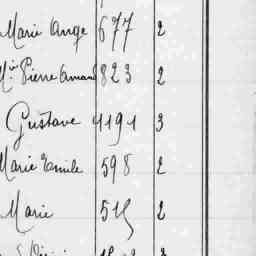 Marie Ange 677 2
Pierre Amand 823 2
Gustave 4191 3
Marie Emile 598 2
Marie 2